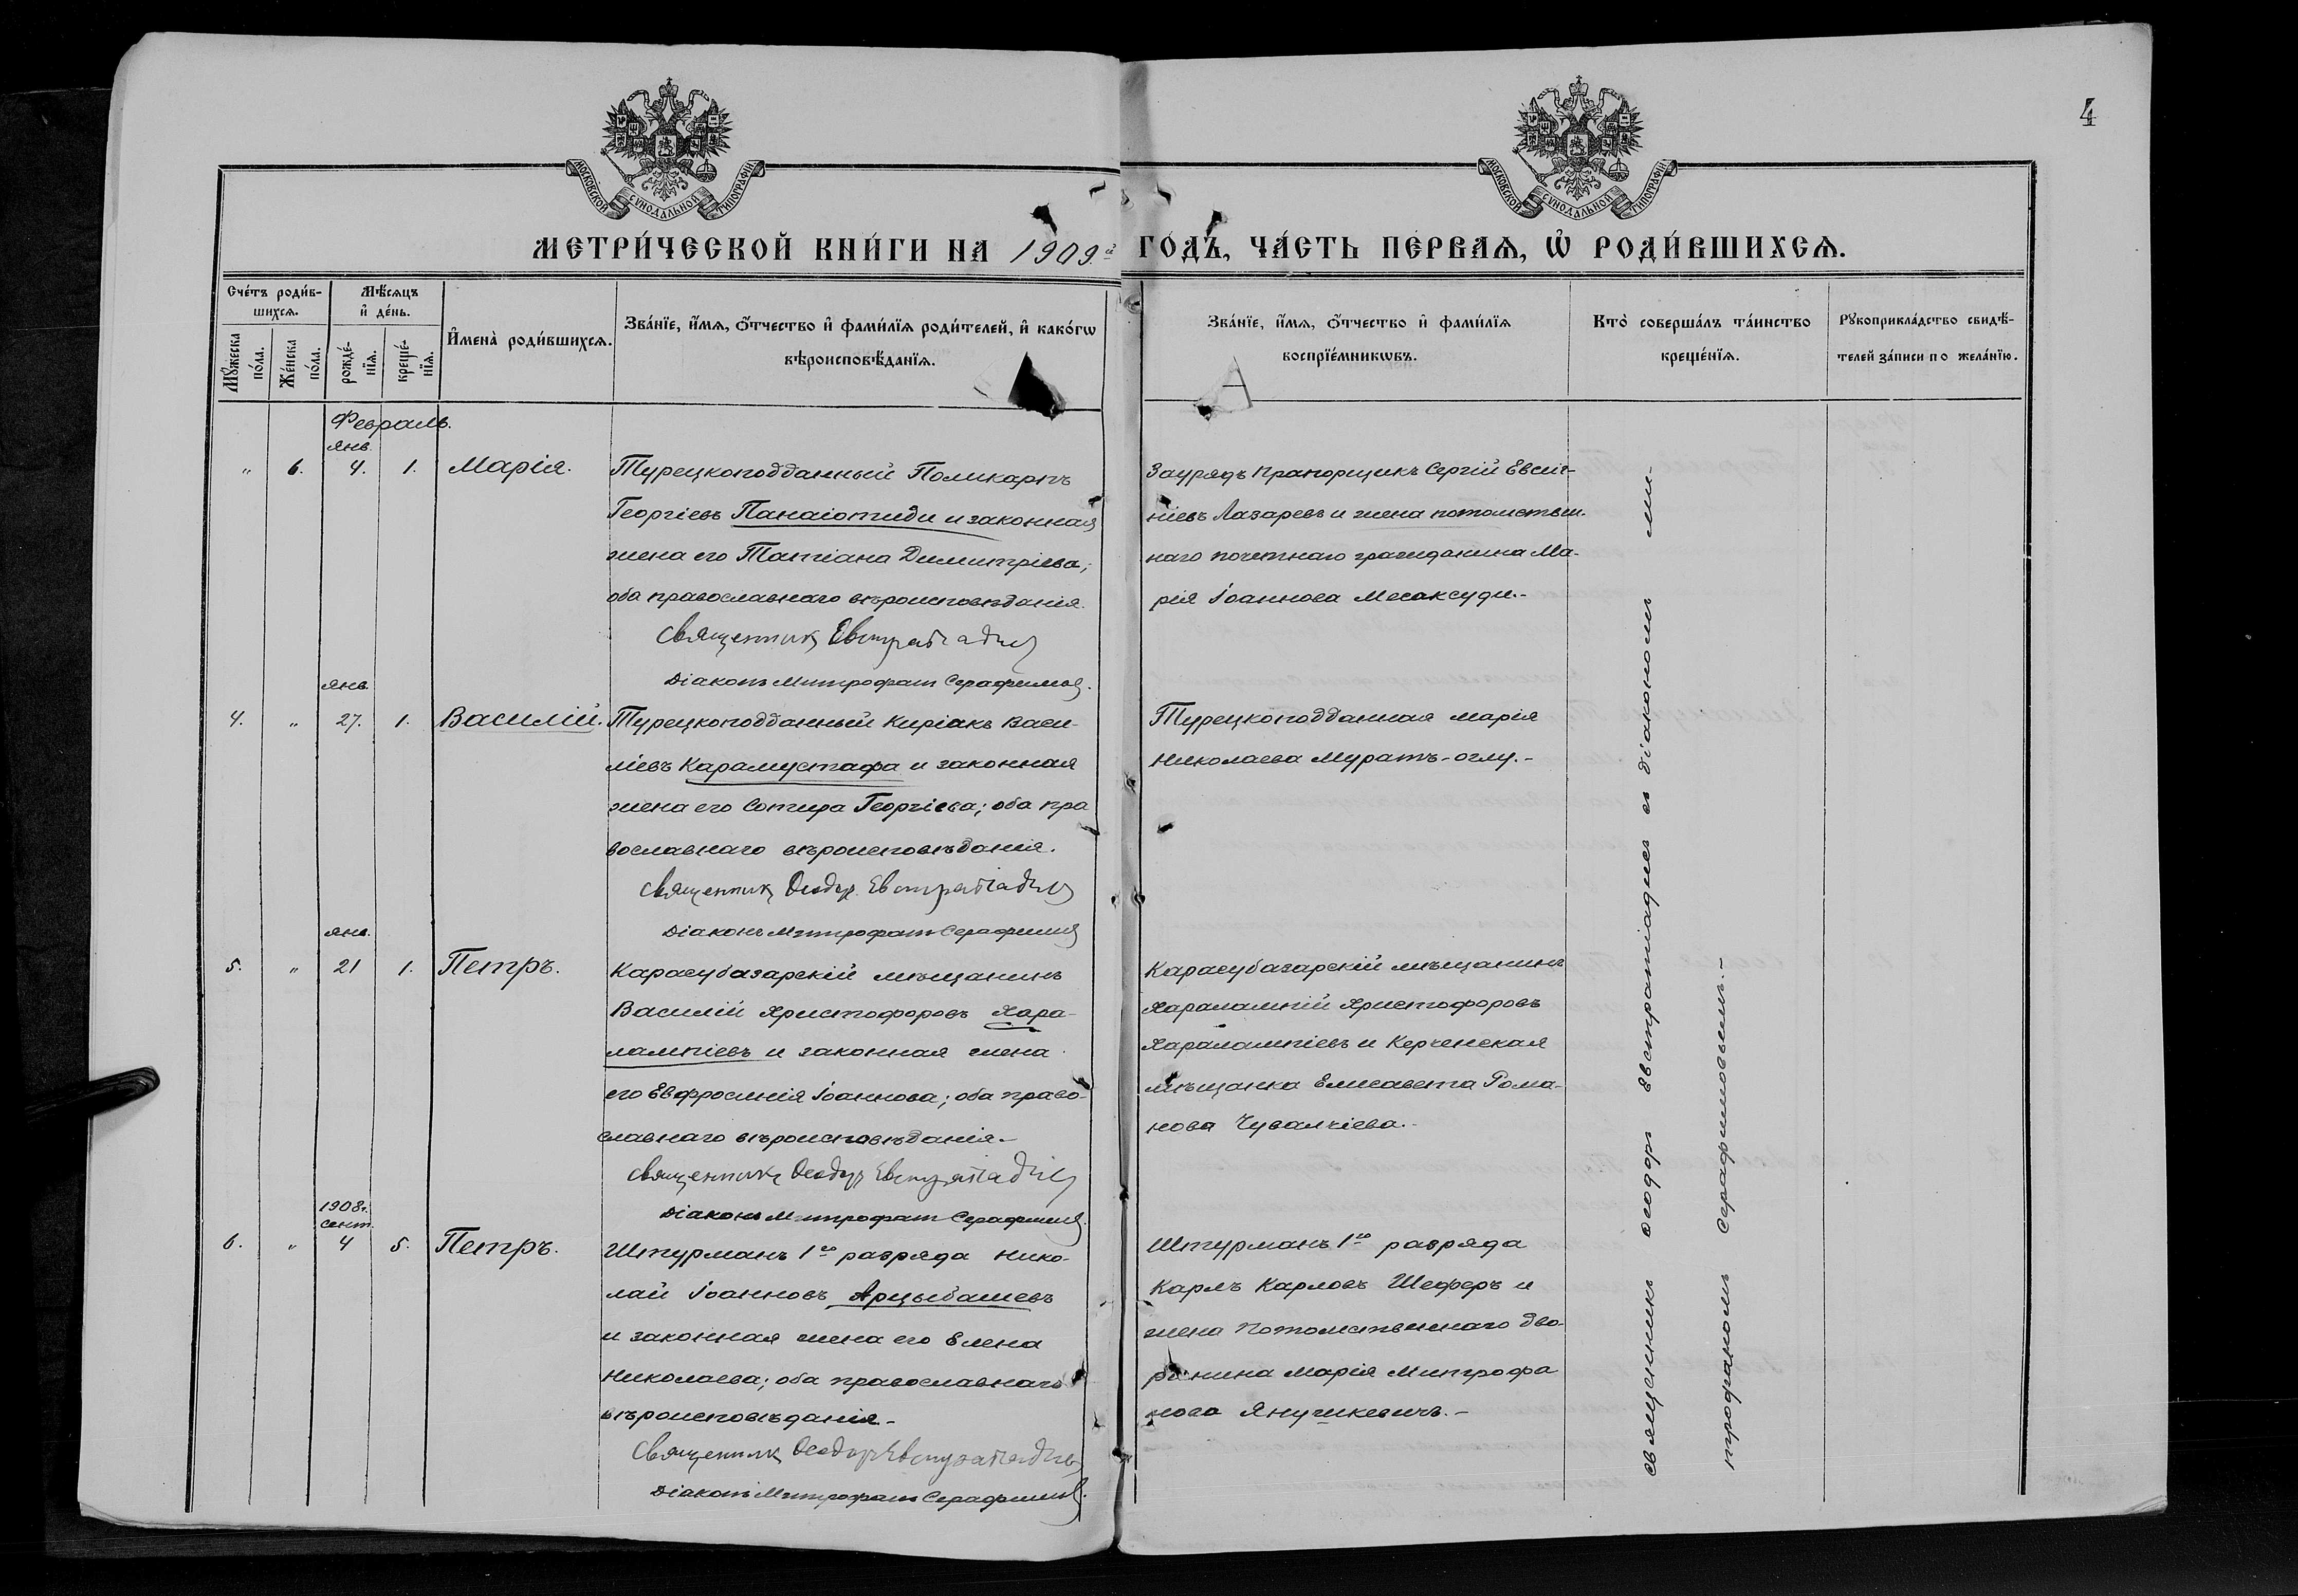 4
МОСКОВСКОЙ СУНОДАЛЬНОЙ ТИПОГРАФІИ
МОСКОВСКОЙ СУНОДАЛЬНОЙ ТИПОГРАФІИ
МЕТРИ́ЧЕСКОЙ КНИ́ГИ НА 1909й ГО́ДЪ, ЧА́СТЬ ПЕ́РВАѦ, Ѡ҆ РОДИ́ВШИХСѦ.
Сче́тъ роди́в-
шихсѧ.
Мꙋ́жеска
по́ла.
Же́нска
по́ла.
Мѣ́сѧцъ
и҆ де́нь.
рожде́-
нїѧ.
креще́-
нїѧ.
И҆мена̀ роди́вшихсѧ.
Зва́нїе, и҆́мѧ, ѻ҆́тчество и҆ фами́лїѧ роди́телей, и҆ како́гѡ
вѣроисповѣ́данїѧ.
Зва́нїе, и҆́мѧ, ѻ҆́тчество и҆ фами́лїѧ
воспрїе́мникѡвъ.
Кто̀ соверша́лъ та́инство
креще́нїѧ.
Рꙋкоприкла́дство свидѣ́-
телей за́писи по жела́нїю.
Февраль.
янв.
" 6. 4. 1. Марія.
Турецкоподданный Поликарпъ
Георгіевъ Панаіотиди и законная
жена его Татіана Димитріева;
оба православнаго вѣроисповѣданія.
Священникъ Евстратіадисъ
Діаконъ Митрофанъ Серафимовъ.
Заурядъ Прапорщикъ Сергій Евсиг-
ніевъ Лазаревъ и жена потомствен-
наго почетнаго гражданина Ма-
рія Іоаннова Месаксуди.-
янв.
4. " 27. 1. Василій.
Турецкоподданный Киріакъ Васи-
ліевъ Карамустафа и законная
жена его Сотира Георгіева; оба пра
вославнаго вѣроисповѣданія.
Священникъ Ѳеодоръ Евстратіадисъ
Діаконъ Митрофанъ Серафимовъ
Турецкоподданная Марія
Николаева Муратъ-оглу.-
янв.
5. " 21 1. Петръ.
Карасубазарскій мѣщанинъ
Василій Христофоровъ Хара-
лампіевъ и законная жена
его Евфросинія Іоаннова; оба право-
славнаго вѣроисповѣданія.-
Священникъ Ѳеодоръ Евстратіадисъ
Діаконъ Митрофанъ Серафимовъ.
Карасубазарскій мѣщанинъ
Харалампій Христофоровъ
Харалампіевъ и Керченская
мѣщанка Елисавета Рома-
нова Чувалчіева.-
1908г.
сент.
6. " 4 5. Петръ.
Штурманъ 1го разряда Нико-
лай Іоанновъ Арцыбашевъ
и законная жена его Елена
Николаева; оба православнаго
вѣроисповѣданія.-
Священникъ Ѳеодоръ Евстратіадисъ
Діаконъ Митрофанъ Серафимовъ.
Штурманъ 1го разряда
Карлъ Карловъ Шеферъ и
жена потомственнаго дво-
рянина Марія Митрофа
нова Янушкевичъ.-
Священникъ Ѳеодоръ Евстратіадисъ съ діакономъ Ми-
трофаномъ Серафимовымъ.-